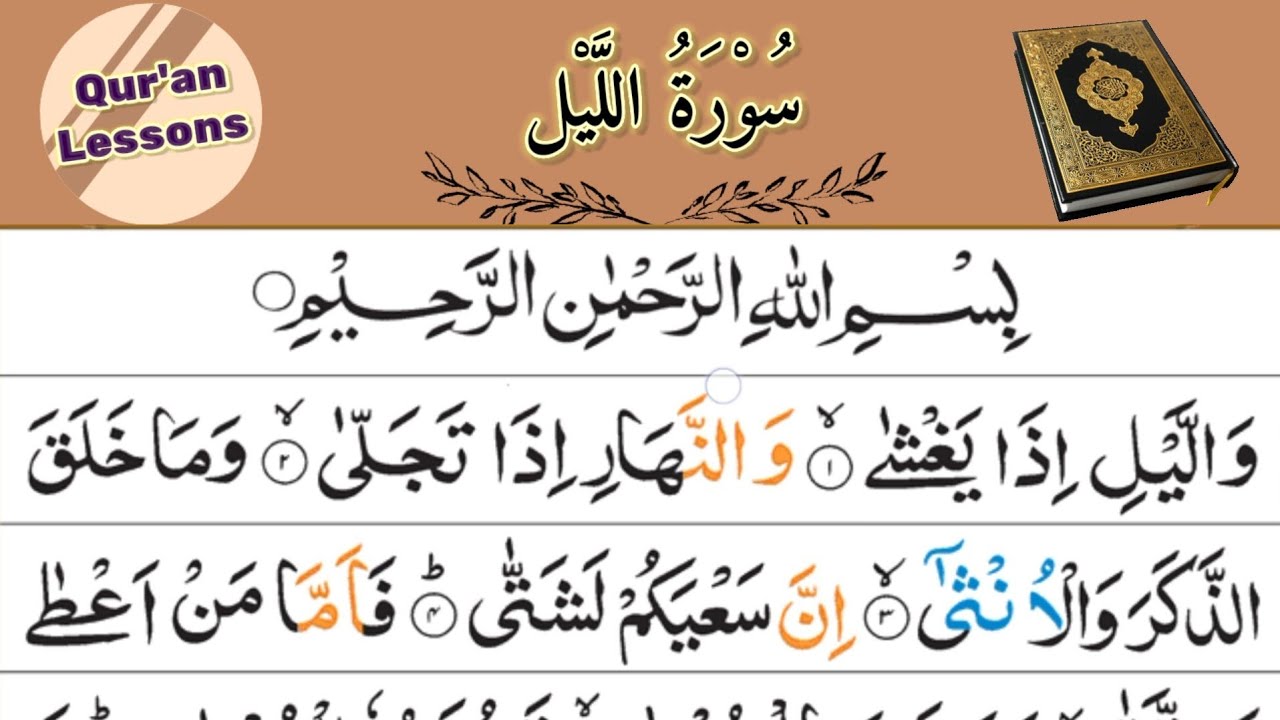 Qur'an
Lessons
سُوْرَةُ اللَّيْل
بِسْمِ اللّٰهِ الرَّحْمٰنِ الرَّحِيْمِ
وَالَّيْلِ اِذَا يَغْشٰى ۙ‏﴿۱﴾ وَالنَّهَارِ اِذَا تَجَلّٰى ۙ‏﴿۲﴾ وَمَا خَلَقَ
الذَّكَرَ وَالْاُنْثٰٓى ۙ‏﴿۳﴾ اِنَّ سَعْيَكُمْ لَشَتّٰى ؕ‏﴿۴﴾ فَاَمَّا مَنْ اَعْطٰى